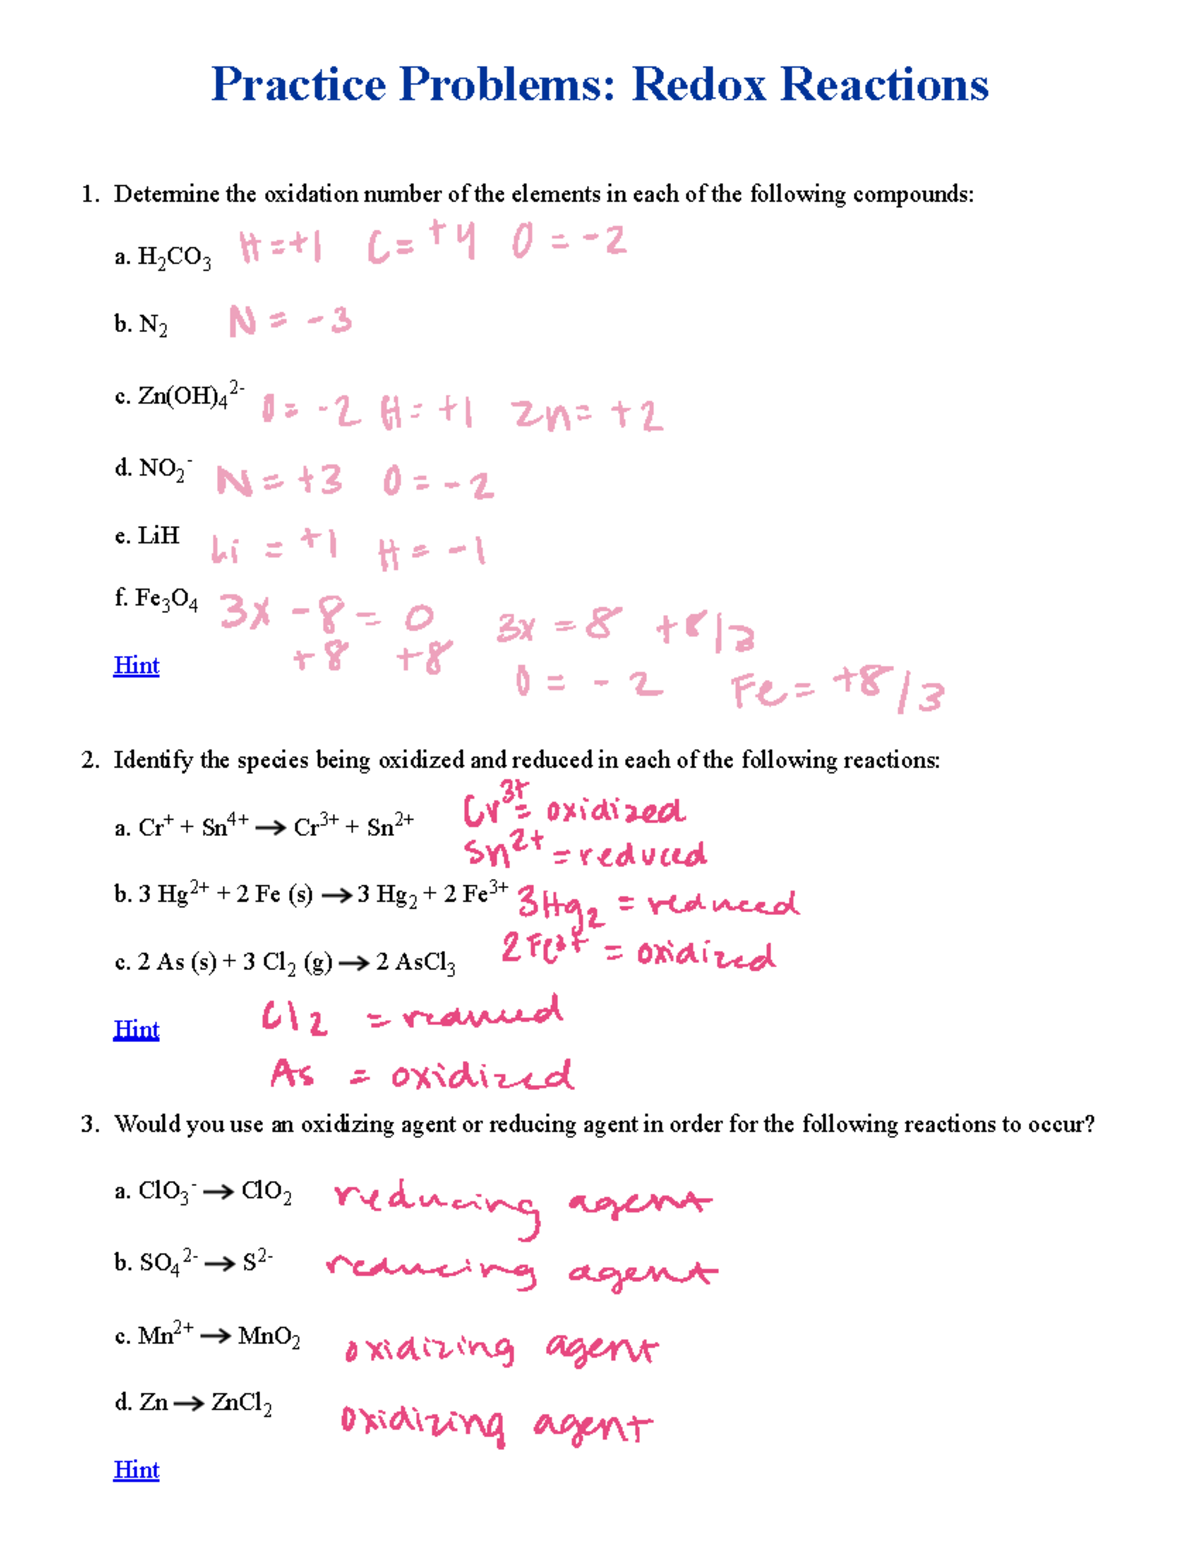 Practice Problems: Redox Reactions
1. Determine the oxidation number of the elements in each of the following compounds:
a. H₂CO₃ H = +1 C = +4 O = -2
b. N₂ N = -3
c. Zn(OH)₄²⁻ O = -2 H = +1 Zn = +2
d. NO₂⁻ N = +3 O = -2
e. LiH Li = +1 H = -1
f. Fe₃O₄ 3x - 8 = 0 3x = 8 +8/3
+8 +8
Hint O = -2 Fe = +8/3
2. Identify the species being oxidized and reduced in each of the following reactions:
a. Cr⁺ + Sn⁴⁺ → Cr³⁺ + Sn²⁺ Cr³⁺ = oxidized
Sn²⁺ = reduced
b. 3 Hg²⁺ + 2 Fe (s) → 3 Hg₂ + 2 Fe³⁺ 3Hg₂ = reduced
2Fe³⁺ = oxidized
c. 2 As (s) + 3 Cl₂ (g) → 2 AsCl₃
Hint Cl2 = reduced
As = oxidized
3. Would you use an oxidizing agent or reducing agent in order for the following reactions to occur?
a. ClO₃⁻ → ClO₂ reducing agent
b. SO₄²⁻ → S²⁻ reducing agent
c. Mn²⁺ → MnO₂ oxidizing agent
d. Zn → ZnCl₂ oxidizing agent
Hint